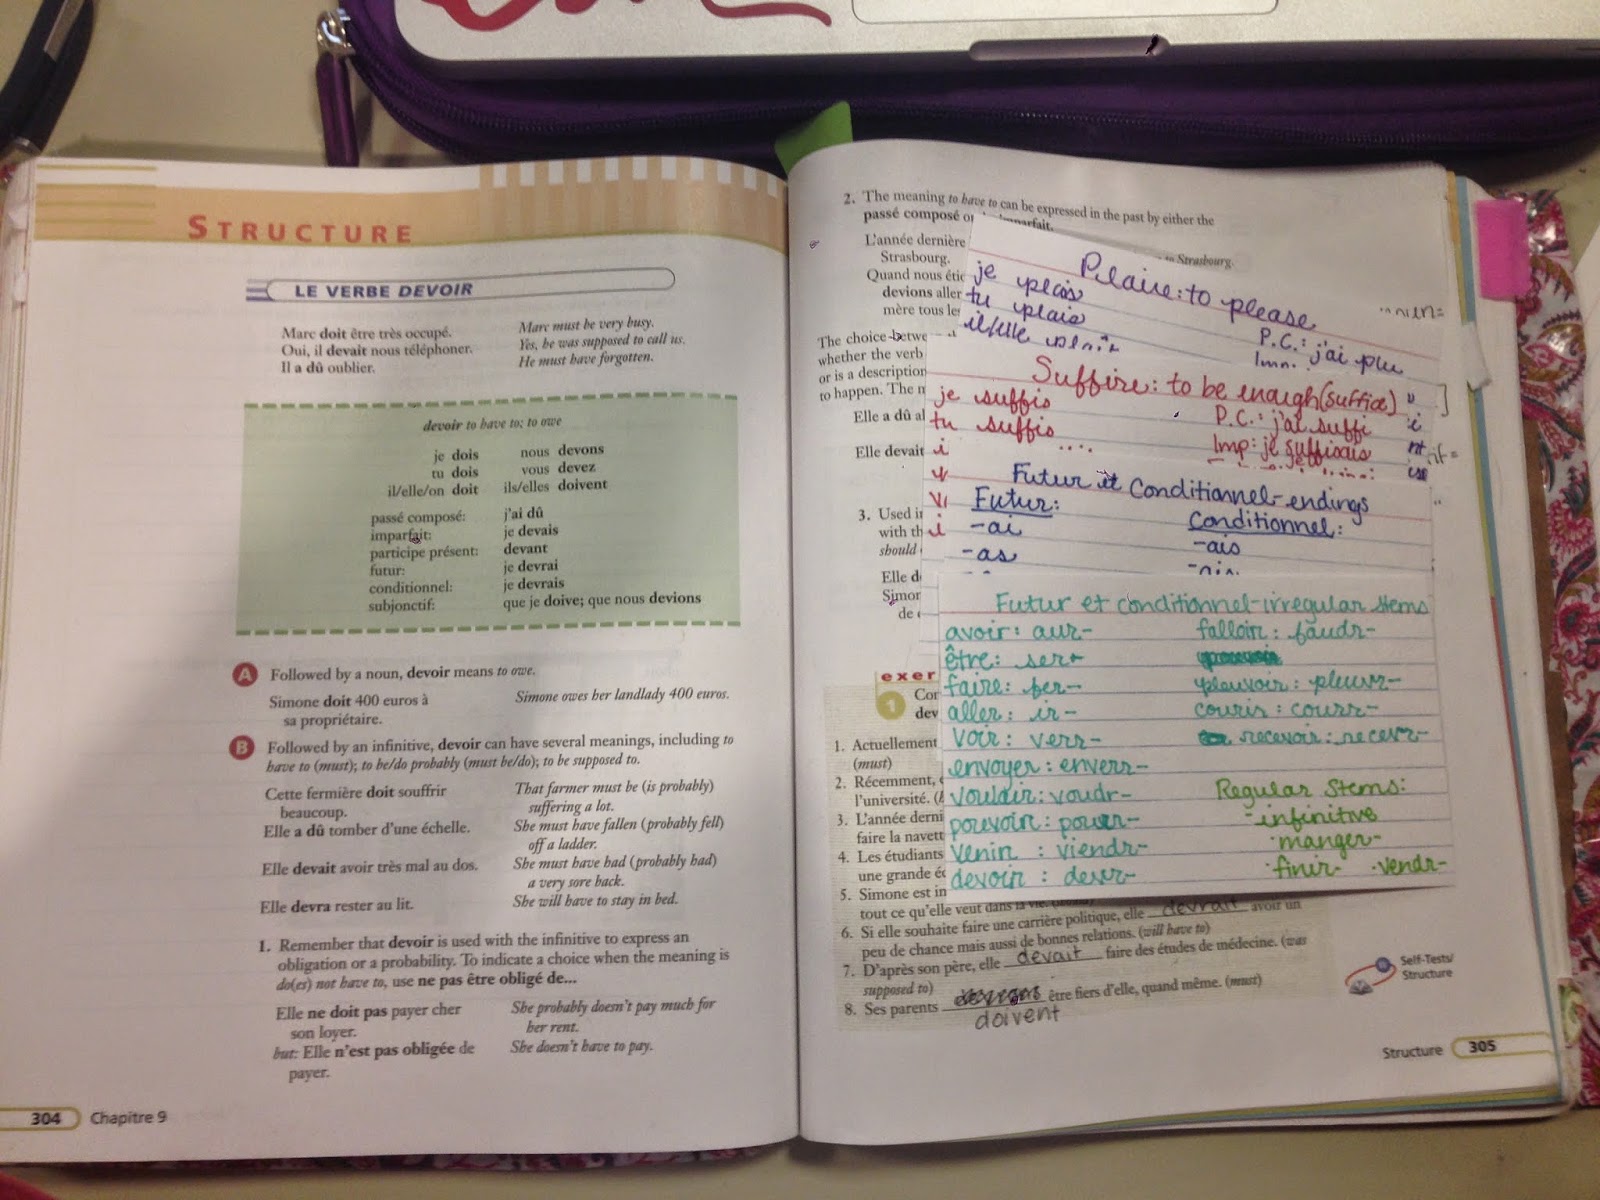 STRUCTURE
LE VERBE DEVOIR
Marc doit être très occupé. Marc must be very busy.
Oui, il devait nous téléphoner. Yes, he was supposed to call us.
Il a dû oublier. He must have forgotten.
devoir to have to; to owe
je dois nous devons
tu dois vous devez
il/elle/on doit ils/elles doivent
passé composé: j'ai dû
imparfait: je devais
participe présent: devant
futur: je devrai
conditionnel: je devrais
subjonctif: que je doive; que nous devions
A Followed by a noun, devoir means to owe.
Simone doit 400 euros à Simone owes her landlady 400 euros.
sa propriétaire.
B Followed by an infinitive, devoir can have several meanings, including to
have to (must); to be/do probably (must be/do); to be supposed to.
Cette fermière doit souffrir That farmer must be (is probably)
beaucoup. suffering a lot.
Elle a dû tomber d'une échelle. She must have fallen (probably fell)
off a ladder.
Elle devait avoir très mal au dos. She must have had (probably had)
a very sore back.
Elle devra rester au lit. She will have to stay in bed.
1. Remember that devoir is used with the infinitive to express an
obligation or a probability. To indicate a choice when the meaning is
do(es) not have to, use ne pas être obligé de...
Elle ne doit pas payer cher She probably doesn't pay much for
son loyer. her rent.
but: Elle n'est pas obligée de She doesn't have to pay.
payer.
304 Chapitre 9
2. The meaning to have to can be expressed in the past by either the
passé composé
L'année dernière
Strasbourg. Strasbourg.
Quand nous
devions aller
mère tous
The choice
whether the verb
or is a description
to happen. The
Elle a dû
Elle devait
3. Used
with
should
Elle
Simon
de
Plaire: to please
je plais
tu plais
il/elle plaît
P.C.: j'ai plu
Suffire: to be enough (suffice)
je suffis P.C.: j'ai suffi
tu suffis Imp: je suffisais
Futur et Conditionnel-endings
Futur: Conditionnel:
-ai -ais
-as -ais
Futur et conditionnel-irregular stems
avoir: aur- falloir: faudr-
être: ser-
faire: fer- pleuvoir: pleuvr-
aller: ir- couris: courr-
voir: verr- recevoir: recevr-
envoyer: enverr-
vouloir: voudr- Regular Stems:
pouvoir: pourr- -infinitive
venir: viendr- ·manger-
devoir: devr- ·finir- ·vendr-
exer
1
1. Actuellement
(must)
2. Récemment,
l'université.
3. L'année
faire la
4. Les étudiants
une grande
5. Simone est
tout ce qu'elle veut dans la vie.
6. Si elle souhaite faire une carrière politique, elle devrait avoir un
peu de chance mais aussi de bonnes relations. (will have to)
7. D'après son père, elle devait faire des études de médecine. (was
supposed to)
8. Ses parents être fiers d'elle, quand même. (must)
doivent
Self-Tests/
Structure
Structure 305